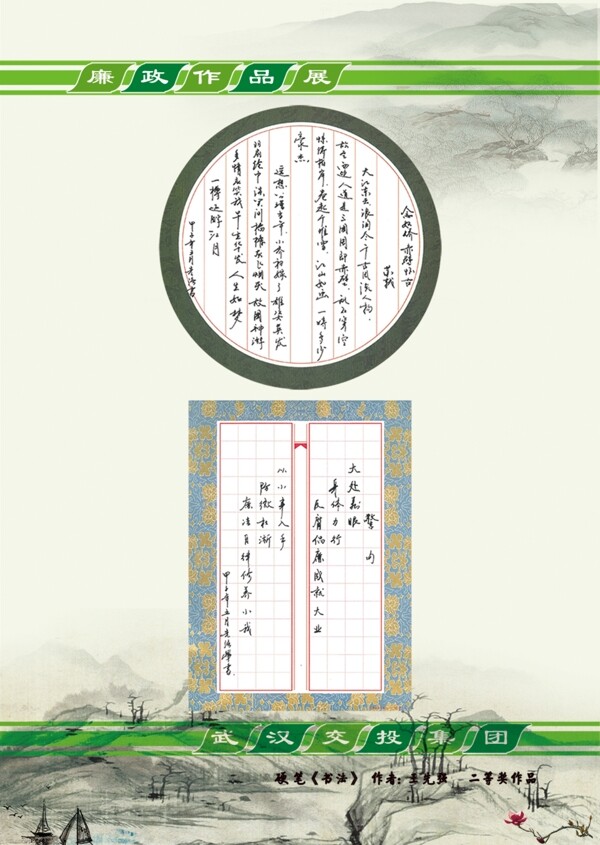 廉政作品展
念奴娇 赤壁怀古
苏轼
大江东去浪淘尽千古风流人物
故垒西边人道是三国周郎赤壁 乱石穿空
惊涛拍岸 卷起千堆雪 江山如画 一时多少
豪杰
遥想公瑾当年 小乔初嫁了 雄姿英发
羽扇纶中谈笑间樯橹灰飞烟灭 故国神游
多情应笑我 早生华发 人生如梦
一樽还酹江月
警句
大处着眼
身体力行
以小事入手
防微杜渐
廉洁自律修养小我
武汉交投集团
硬笔《书法》 作者: 王先强 二等奖作品